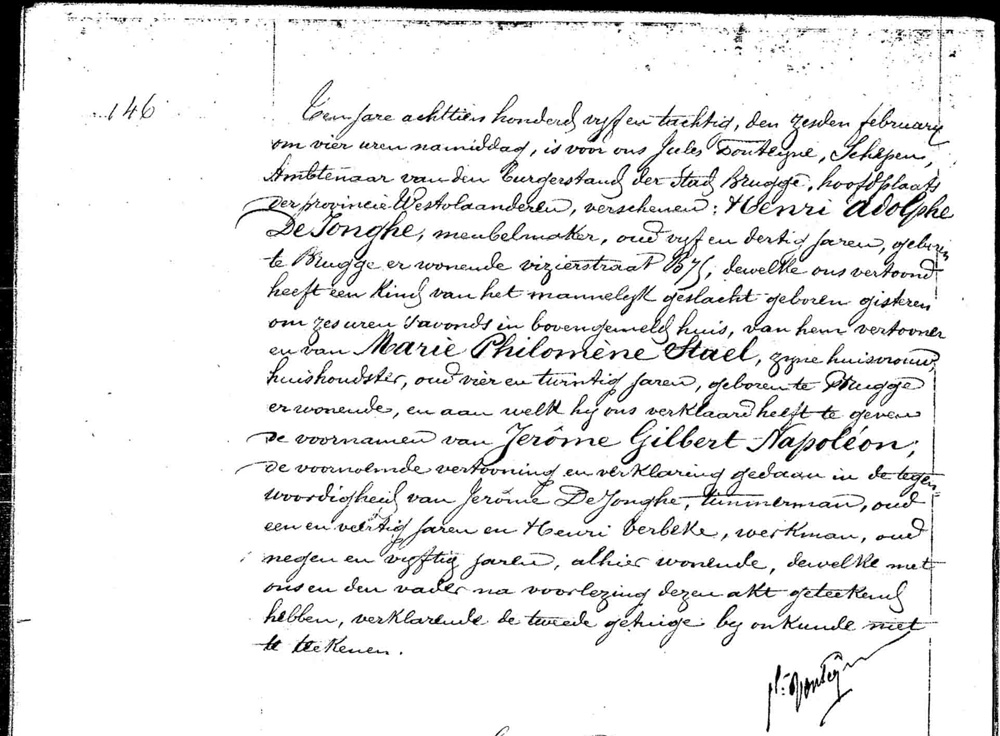 146
Ten jare achttien honderd vyf en tachtig, den zesden february
om vier uren namiddag, is voor ons Jules Donteyne, Schepen,
Ambtenaar van den burgerstand der Stad Brugge, hoofdplaats
der provincie Westvlaanderen, verschenen: Henri Adolphe
De Jonghe, meubelmaker, oud vyf en dertig jaren, geboren
te Brugge er wonende vizierstraat B75, dewelke ons vertoond
heeft een kind van het mannelyk geslacht geboren gisteren
om zes uren 's avonds in bovengemeld huis, van hem vertooner
en van Marie Philomène Stael, zyne huisvrouw,
huishoudster, oud vier en twintig jaren, geboren te Brugge
er wonende, en aan welk hy ons verklaard heeft te geven
de voornamen van Jerôme Gilbert Napoléon;
de voornoemde vertooning en verklaring gedaan in de tegen-
woordigheid van Jerôme De Jonghe, timmerman, oud
een en veertig jaren en Henri Verbeke, werkman, oud
negen en vyftig jaren, alhier wonende, dewelke met
ons en den vader na voorlezing dezen akt geteekend
hebben, verklarende de tweede getuige by onkunde niet
te teekenen.
Donteyne